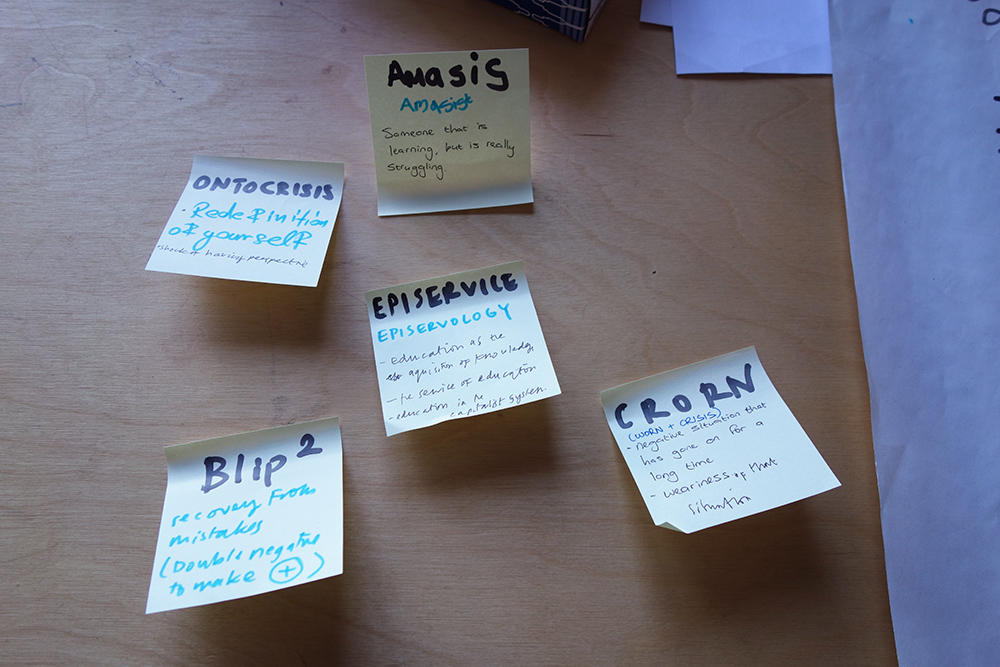 Amasis
Amasist
Someone that is
learning, but is really
struggling.
ONTOCRISIS
• Redefinition
of yourself
• shock of having perspective
EPISERVICE
EPISERVOLOGY
- Education as the
aquisition of knowledge
- the service of education
- education in the
capitalist system.
CRORN
(WORN + CRISIS)
- negative situation that
has gone on for a
long time
- weariness of that
situation
Blip²
recovery from
mistakes
(Double negative
to make +)